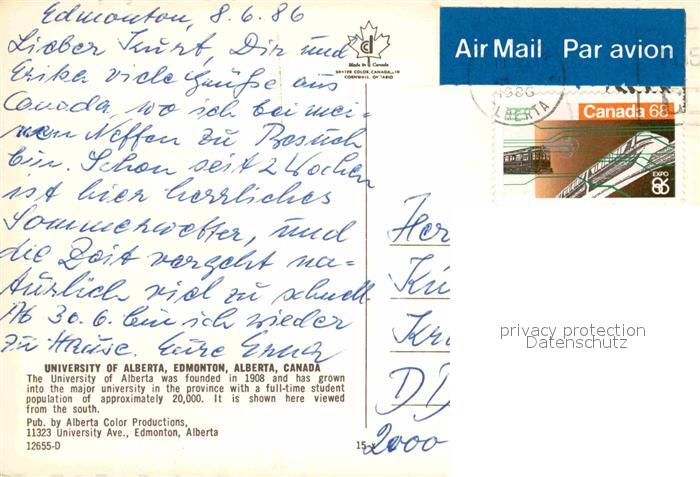 Edmonton, 8.6.86
Lieber Kurt, Dir und
Erika viele Grüße aus
Canada, wo ich bei mei-
nem Neffen zu Besuch
bin. Schon seit 2 Wochen
ist hier herrliches
Sommerwetter, und
die Zeit vergeht na=
türlich viel zu schnell.
Ab 30.6. bin ich wieder
zu Hause. Eure Erna
UNIVERSITY OF ALBERTA, EDMONTON, ALBERTA, CANADA
The University of Alberta was founded in 1908 and has grown
into the major university in the province with a full-time student
population of approximately 20,000. It is shown here viewed
from the south.
Pub. by Alberta Color Productions,
11323 University Ave., Edmonton, Alberta
12655-D
15
dc
Made in Canada
DEXTER COLOR, CANADA
CORNWALL, ONTARIO
Air Mail Par avion
1986
ALBERTA
Canada 68
EXPO
86
Her
Kü
Kr
DD
2000
privacy protection
Datenschutz